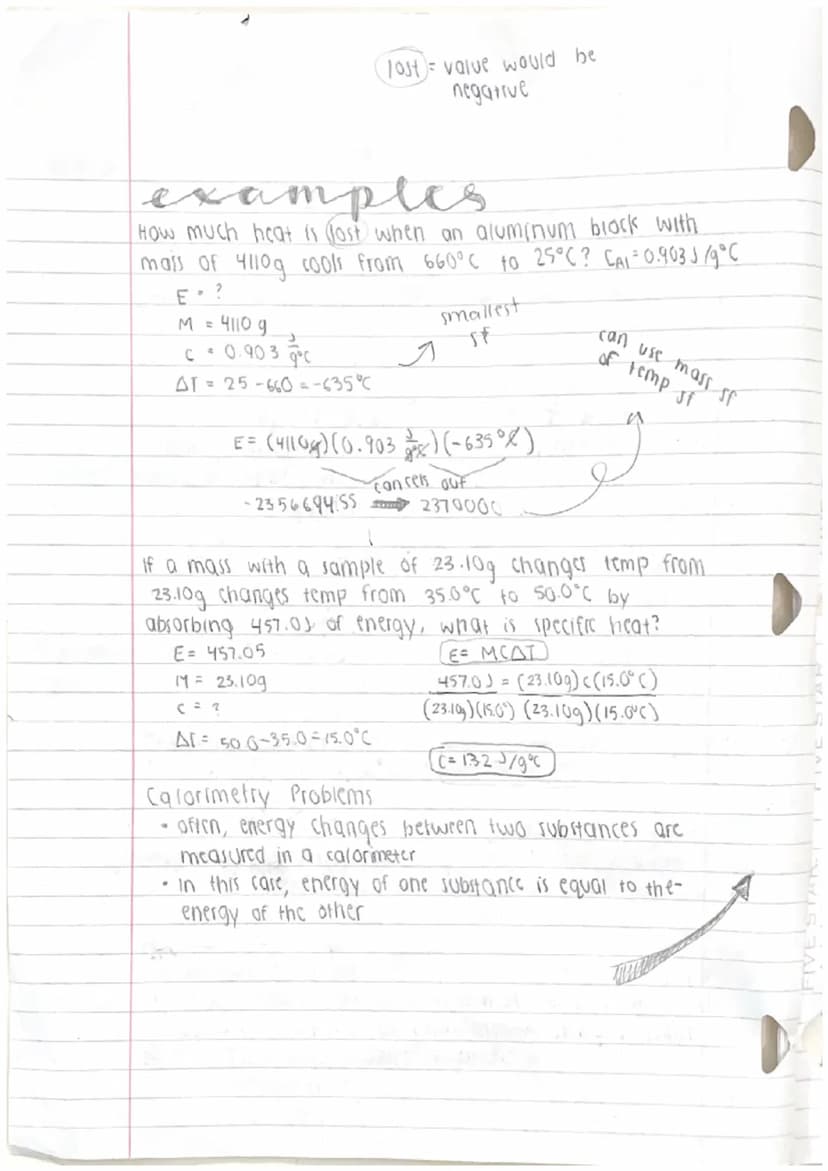 lost = value would be
negative
examples
How much heat is lost when an aluminum block with
mass of 4110g cools from 660°C to 25°C? CAl = 0.903 J/g°C
E = ?
M = 4110 g
C = 0.903 J/g°C
ΔT = 25 - 660 = -635°C
smallest
sf
can use mass sf
of temp sf
E = (4110g)(0.903 J/g°C)(-635°C)
cancels out
-2356694.55 ⟹ 2370000
If a mass with a sample of 23.10g changes temp from
23.10g changes temp from 35.0°C to 50.0°C by
absorbing 457.0J of energy, what is specific heat?
E = 457.05
M = 23.10g
C = ?
ΔT = 50.0-35.0 = 15.0°C
E = MCΔT
457.0J = (23.10g)c(15.0°C)
(23.10g)(15.0°) (23.10g)(15.0°C)
C = 1.32 J/g°C
Calorimetry Problems
• often, energy changes between two substances are
measured in a calorimeter
• in this case, energy of one substance is equal to the-
energy of the other
FIVE STAR